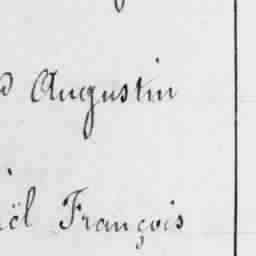 Augustin
François